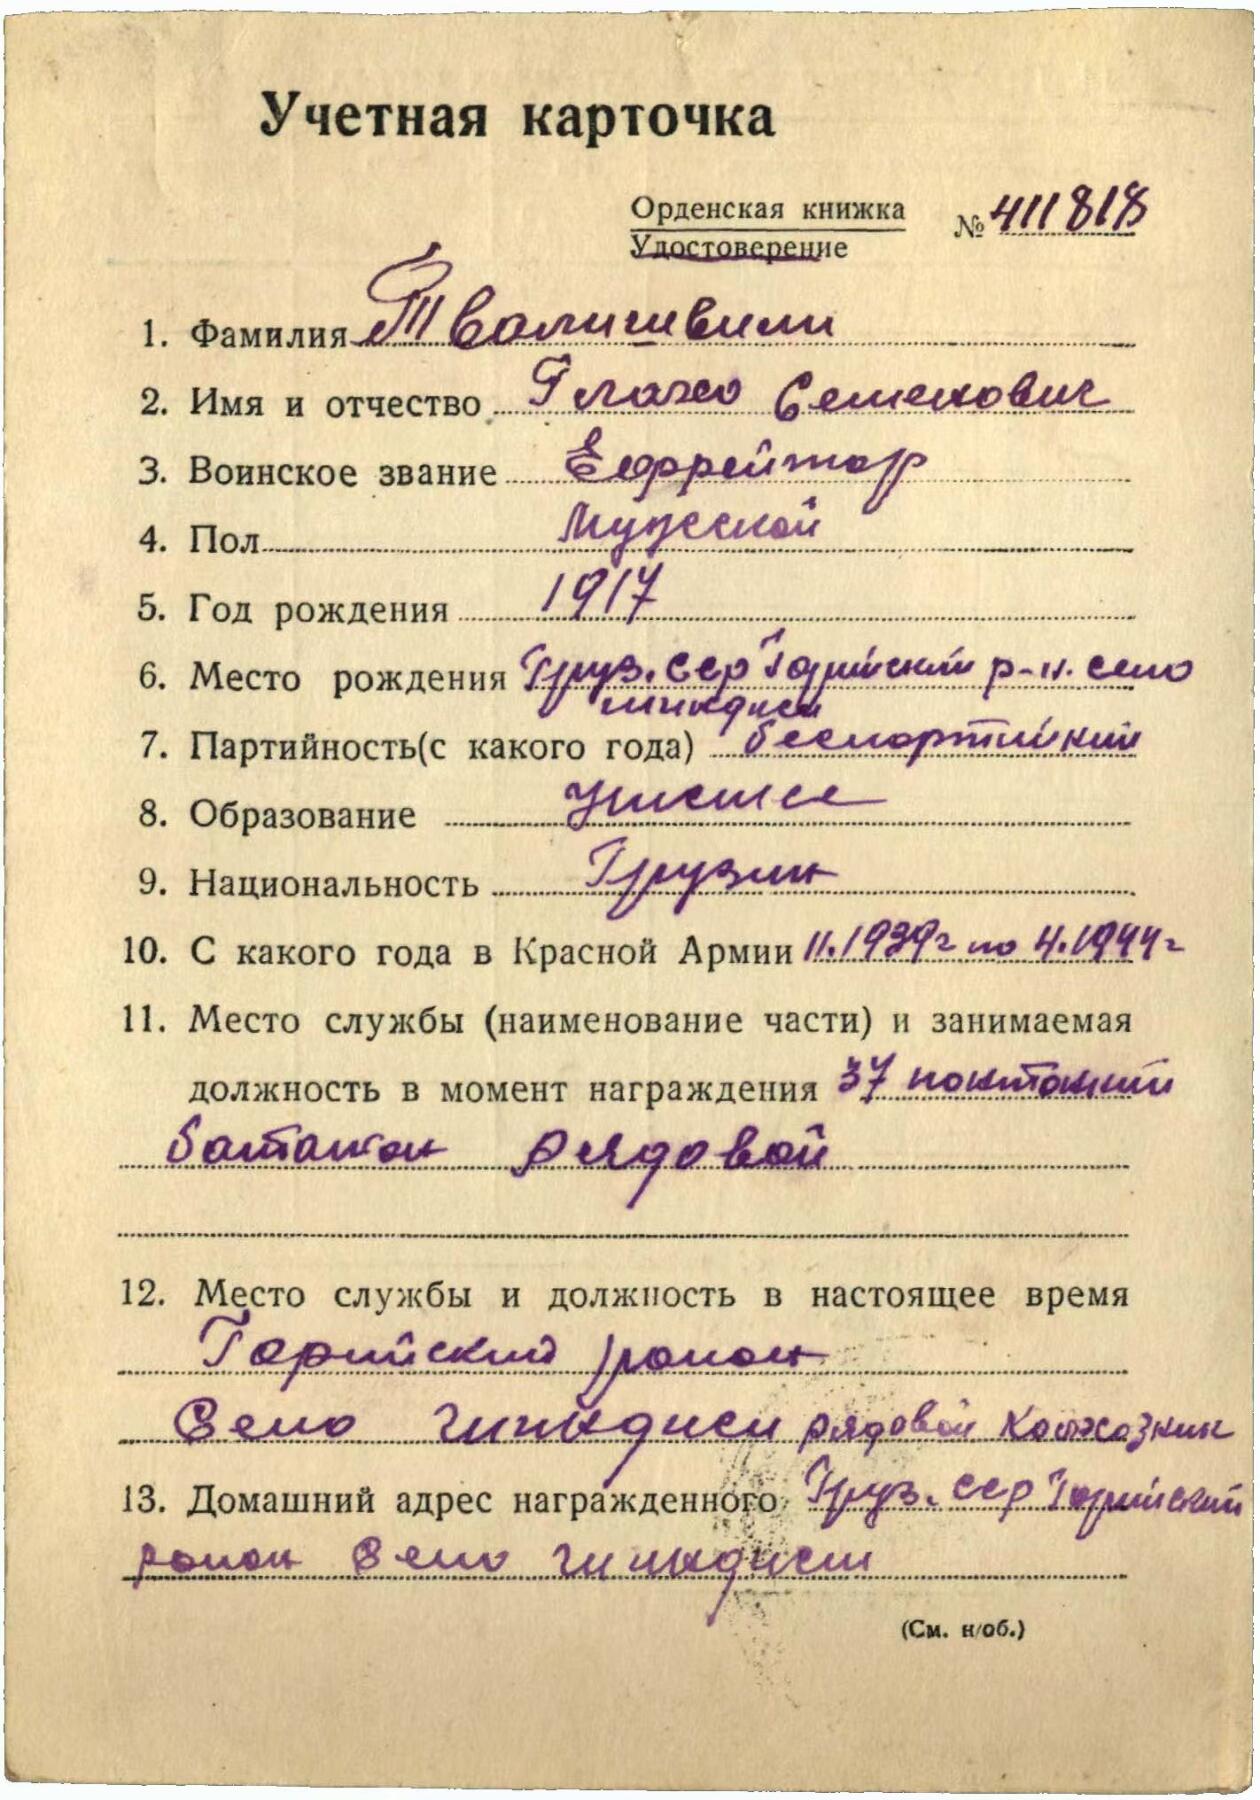 Учетная карточка
Орденская книжка
Удостоверение
№ 411818
1. Фамилия Твалишвили
2. Имя и отчество Глахо Семенович
3. Воинское звание Ефрейтор
4. Пол Мужской
5. Год рождения 1917
6. Место рождения Груз. ССР Горийский р-н. село
7. Партийность(с какого года) беспартийний
8. Образование
9. Национальность Грузин
10. С какого года в Красной Армии 11.1939г по 4.1944г
11. Место службы (наименование части) и занимаемая
должность в момент награждения 37
баталион рядовой
12. Место службы и должность в настоящее время
Горийский район
Село рядовой Колхозник
13. Домашний адрес награжденного Груз. ССР Горийский
район Село
(См. н/об.)